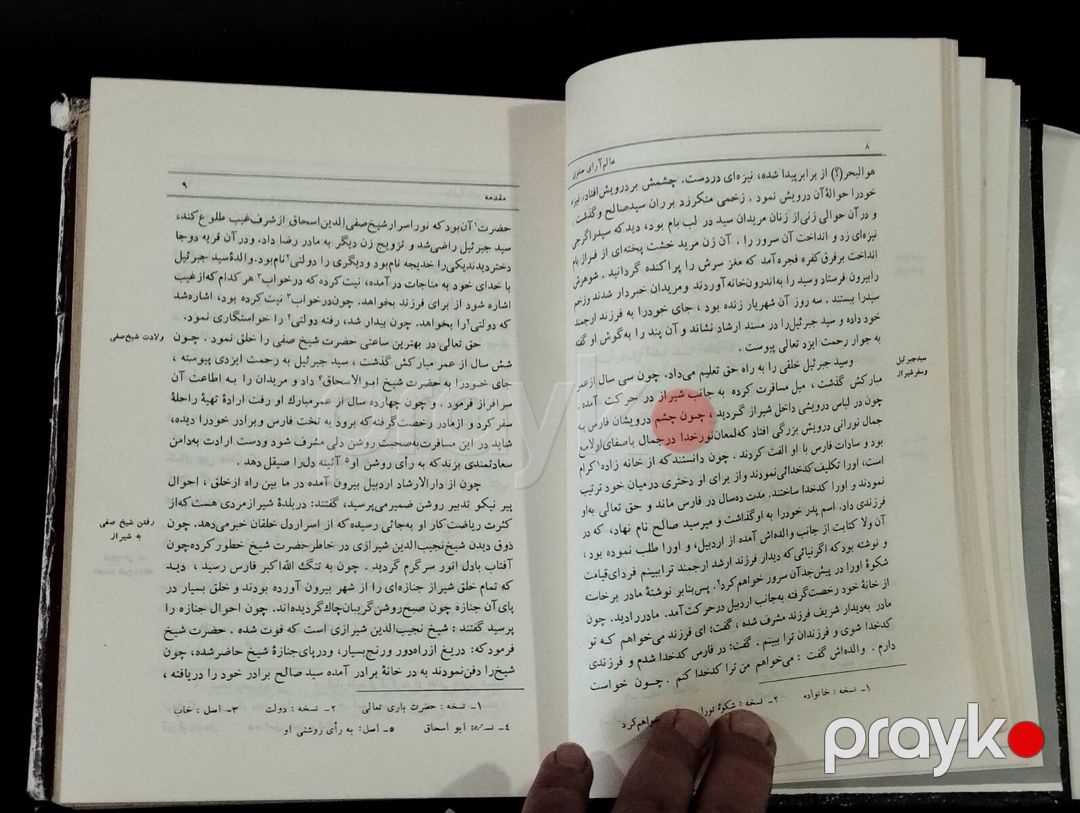 ۸
عالم‌آرای صفوی
هوالبحر(؟) از برابر پیدا شده، نیزه‌ای دردست. چشمش بر درویش افتاد، نیزه
خودرا حوالهٔ آن درویش نمود. زخمی منکر زد بر ران سید صالح و گذشت.
و در آن حوالی زنی از زنان مریدان سید در لب بام بود، دید که سید را گرجی
نیزه‌ای زد و انداخت آن سرور را. آن زن مرید خشت پخته‌ای از فراز بام
انداخت بر فرق کفره فجره آمد که مغز سرش را پراکنده گردانید. شوهرش
را بیرون فرستاد وسید را به‌اندرون خانه آوردند و مریدان خبردار شدند و زخم
سیدرا ببستند. سه روز آن شهریار زنده بود، جای خودرا به فرزند ارجمند
خود داده و سید جبرئیل را در مسند ارشاد نشاند و آن پند را به‌گوش او گفته
به جوار رحمت ایزد تعالی پیوست.
سید جبرئیل
وسفر شیراز
وسید جبرئیل خلقی را به راه حق تعلیم می‌داد. چون سی سال از عمر
مبارکش گذشت، میل مسافرت کرده به جانب شیراز در حرکت آمده.
چون در لباس درویشی داخل شیراز گردید، چون چشم درویشان فارس به
جمال نورانی درویش بزرگی افتاد که لمعان نورخدا در جمال باصفای او لایح
بود و سادات فارس با او الفت کردند. چون دانستند که از خانه زاده۱ کرام
است، اورا تکلیف کدخدائی نمودند واز برای او دختری در میان خود ترتیب
نمودند و اورا کدخدا ساختند. مدت ده‌سال در فارس ماند و حق تعالی به‌او
فرزندی داد. اسم پدر خودرا به او گذاشت و میرسید صالح نام نهاد، که در
آن ولا کتابت از جانب والده‌اش آمده از اردبیل، و اورا طلب نموده بود،
و نوشته بود که اگر نیائی که دیدار فرزند ارشد ارجمند ترا ببینم فردای قیامت
شکوهٔ اورا در پیش جد آن سرور خواهم کرد۲. پس بنابر نوشتهٔ مادر برخاسته
از خانهٔ خود رخصت گرفته به‌جانب اردبیل درحرکت آمد. مادر را دید. چون
مادر به‌دیدار شریف فرزند مشرف شده، گفت: ای فرزند می‌خواهم که تو
کدخدا شوی و فرزندان ترا ببینم. گفت: در فارس کدخدا شدم و فرزندی
دارم. والده‌اش گفت: می‌خواهم من ترا کدخدا کنم. چون خواست
۱- نسخه: خانواده
۲- نسخه: شکوهٔ تورا
خواهم کرد
مقدمه
۹
حضرت۱ آن بود که نور اسرار شیخ صفی‌الدین اسحاق از شرف غیب طلوع کند،
سید جبرئیل راضی شد و تزویج زن دیگر به مادر رضا داد. ودر آن قریه دوجا
دختر دیدند یکی را خدیجه نام بود و دیگری را دولتی۲ نام بود. والدهٔ سید جبرئیل
با خدای خود به مناجات در آمده، نیت کرده که درخواب۳ هر کدام که از غیب
اشاره شود از برای فرزند بخواهد. چون درخواب۳ نیت کرده بود، اشاره شد
که دولتی۲ را بخواهد. چون بیدار شد، رفته دولتی۲ را خواستگاری نمود.
ولادت شیخ صفی
حق تعالی در بهترین ساعتی حضرت شیخ صفی را خلق نمود. چون
شش سال از عمر مبارکش گذشت، سید جبرئیل به رحمت ایزدی پیوسته،
جای خودرا به حضرت شیخ ابوالاسحاق۴ داد و مریدان را به اطاعت آن
سرافراز فرمود. و چون چهارده سال از عمر مبارک او رفت ارادهٔ تهیهٔ راحلهٔ
سفر کرد و از مادر رخصت گرفته که برود به تخت فارس و برادر خودرا دیده،
شاید در این مسافرت به‌صحبت روشن دلی مشرف شود ودست ارادت به‌دامن
سعادتمندی بزند که به رأی روشن او۵ آئینه دل را صیقل دهد.
رفتن شیخ صفی
به شیراز
چون از دارالارشاد اردبیل بیرون آمده در ما بین راه از خلق، احوال
پیر نیکو تدبیر روشن ضمیر می‌پرسید، گفتند: دربلدهٔ شیراز مردی هست که از
کثرت ریاضت کار او به‌جائی رسیده که از اسرار دل خلقان خبر می‌دهد. چون
ذوق دیدن شیخ نجیب‌الدین شیرازی در خاطر حضرت شیخ خطور کرده چون
آفتاب بادل انور سرگرم گردید. چون به تنگ‌الله‌اکبر فارس رسید، دید
که تمام خلق شیراز جنازه‌ای را از شهر بیرون آورده بودند و خلق بسیار در
پای آن جنازه چون صبح روشن گریبان چاک گردیده‌اند. چون احوال جنازه را
پرسید گفتند: شیخ نجیب‌الدین شیرازی است که فوت شده. حضرت شیخ
فرمود که: دریغ از راه دور و رنج بسیار، و در پای جنازهٔ شیخ حاضر شده، چون
شیخ را دفن نمودند به در خانهٔ برادر آمده سید صالح برادر خود را دریافته،
۱- نسخه: حضرت باری تعالی ۲- نسخه: دولت ۳- اصل: خاب
۴- نسخه: ابو اسحاق ۵- اصل: به رأی روشنی او
prayk